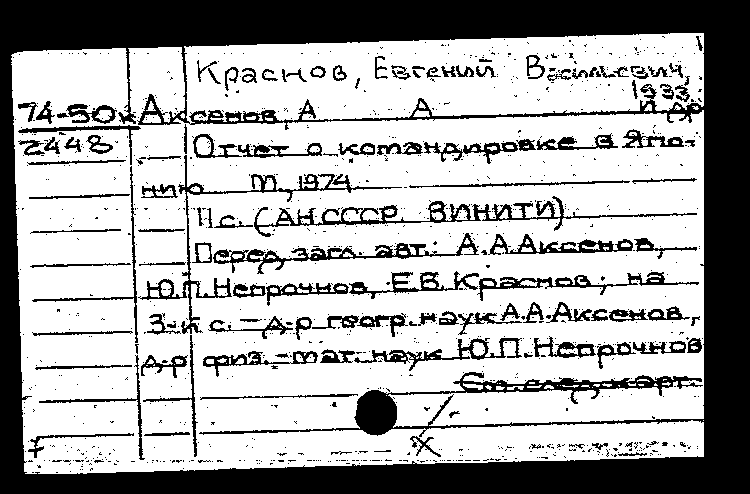 Краснов, Евгений Васильевич,
1933-
74-50к Аксенов, А А и др
2448 Отчет о командировке в Япо-
нию М., 1974
11 с. (АН СССР. ВИНИТИ)
Перед загл. авт.: А.А.Аксенов,
Ю.П.Непрочнов, Е.В.Краснов; на
3-й с. - д-р геогр. наук А.А.Аксенов,
д-р физ.-мат. наук Ю.П.Непрочнов
См. след. карт.